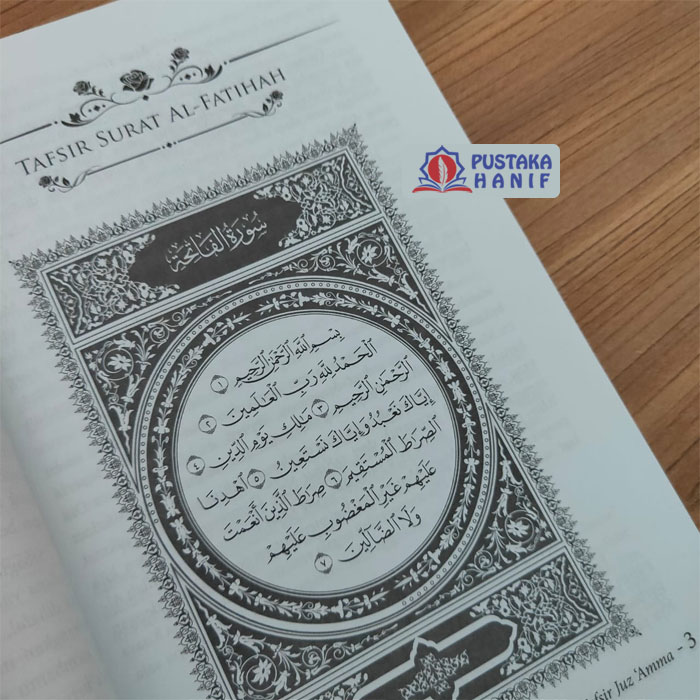 TAFSIR SURAT AL-FATIHAH
PUSTAKA
HANIF
سُورَةُ الْفَاتِحَةِ
بِسْمِ اللَّهِ الرَّحْمَٰنِ الرَّحِيمِ ١
الْحَمْدُ لِلَّهِ رَبِّ الْعَالَمِينَ ٢
الرَّحْمَٰنِ الرَّحِيمِ ٣ مَالِكِ يَوْمِ الدِّينِ ٤
إِيَّاكَ نَعْبُدُ وَإِيَّاكَ نَسْتَعِينُ ٥ اهْدِنَا
الصِّرَاطَ الْمُسْتَقِيمَ ٦ صِرَاطَ الَّذِينَ أَنْعَمْتَ
عَلَيْهِمْ غَيْرِ الْمَغْضُوبِ عَلَيْهِمْ
وَلَا الضَّالِّينَ ٧
Juz 'Amma - 3